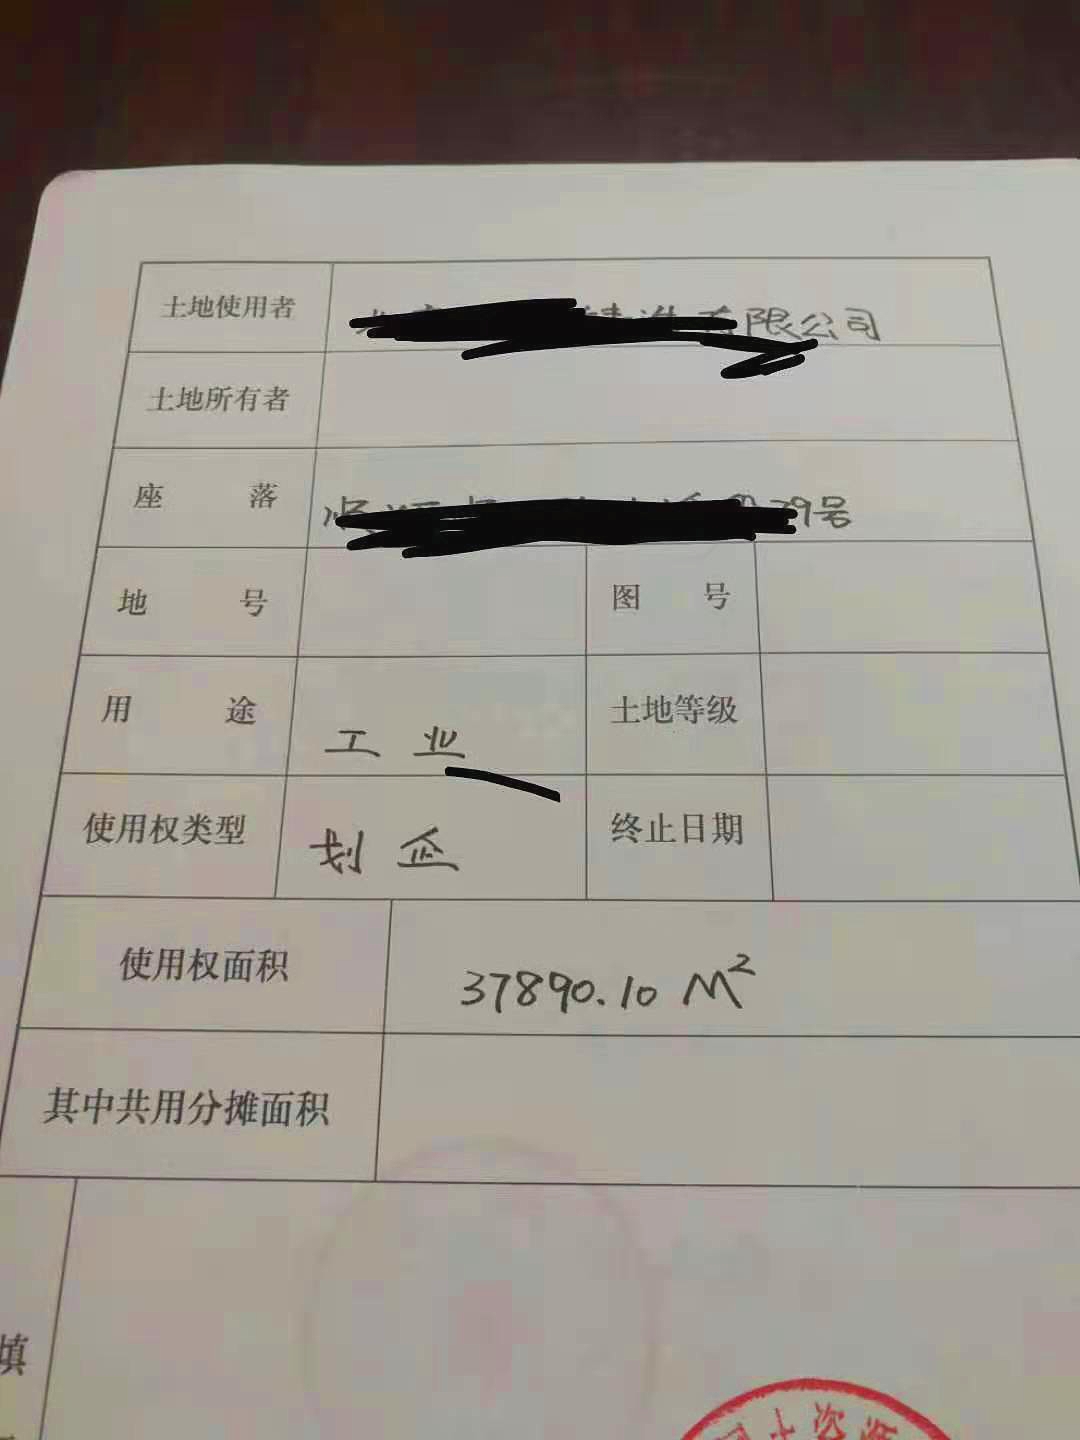 土地使用者 有限公司
土地所有者
座落 79号
地号 图号
用途 工业 土地等级
使用权类型 划企 终止日期
使用权面积 37890.10 M²
其中共用分摊面积
填
国土资源